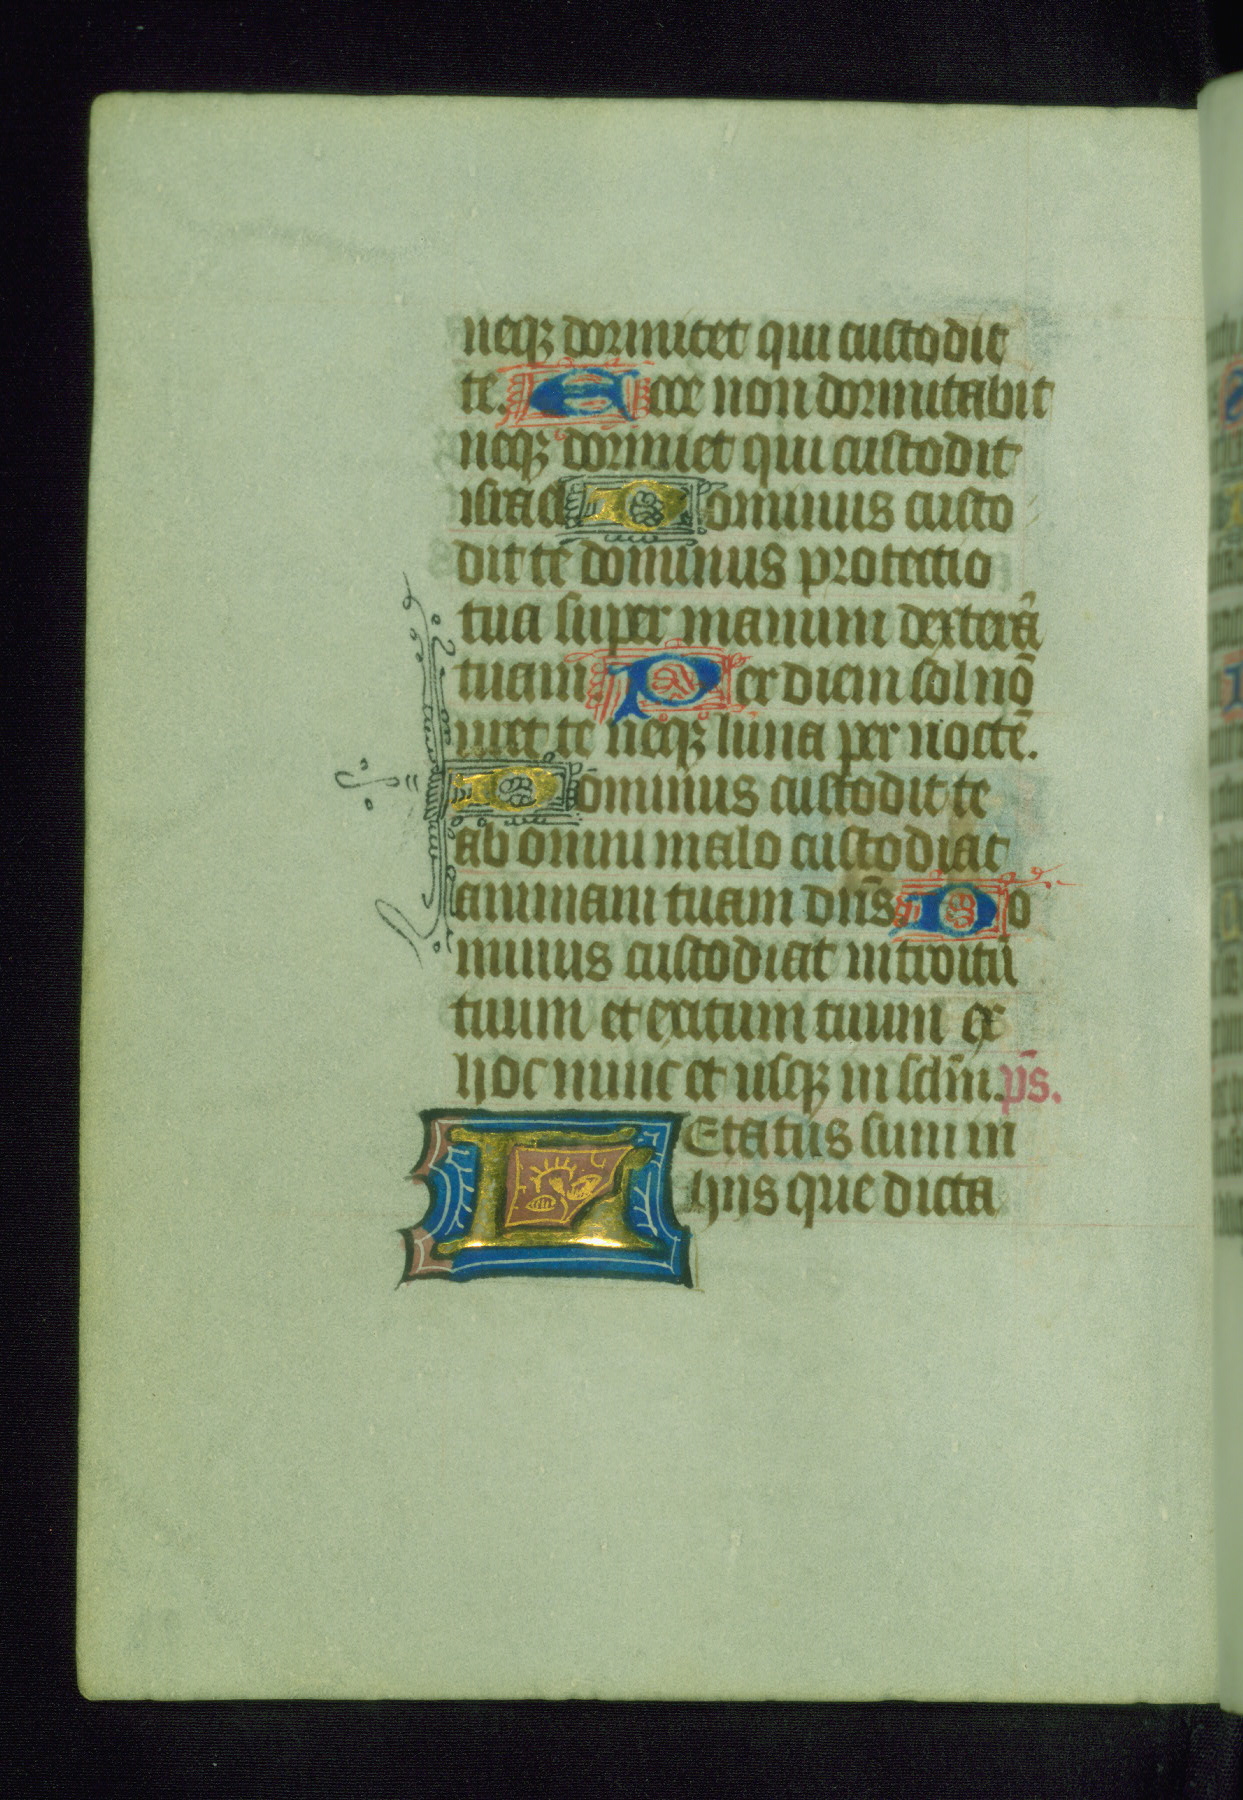 neqȝ dormitet qui custodit
te. Ecce non dormitabit
neqȝ dormiet qui custodit
israel Dominus custo
dit te dominus protectio
tua super manum dexterā
tuam. Per diem sol nō
uret te neqȝ luna per noctē.
Dominus custodit te
ab omni malo custodiat
animam tuam dn̄s. Do
minus custodiat introitū
tuum et exitum tuum ex
hoc nunc et usqȝ in sclm̄. p̄s.
Letatus sum in
hijs que dicta